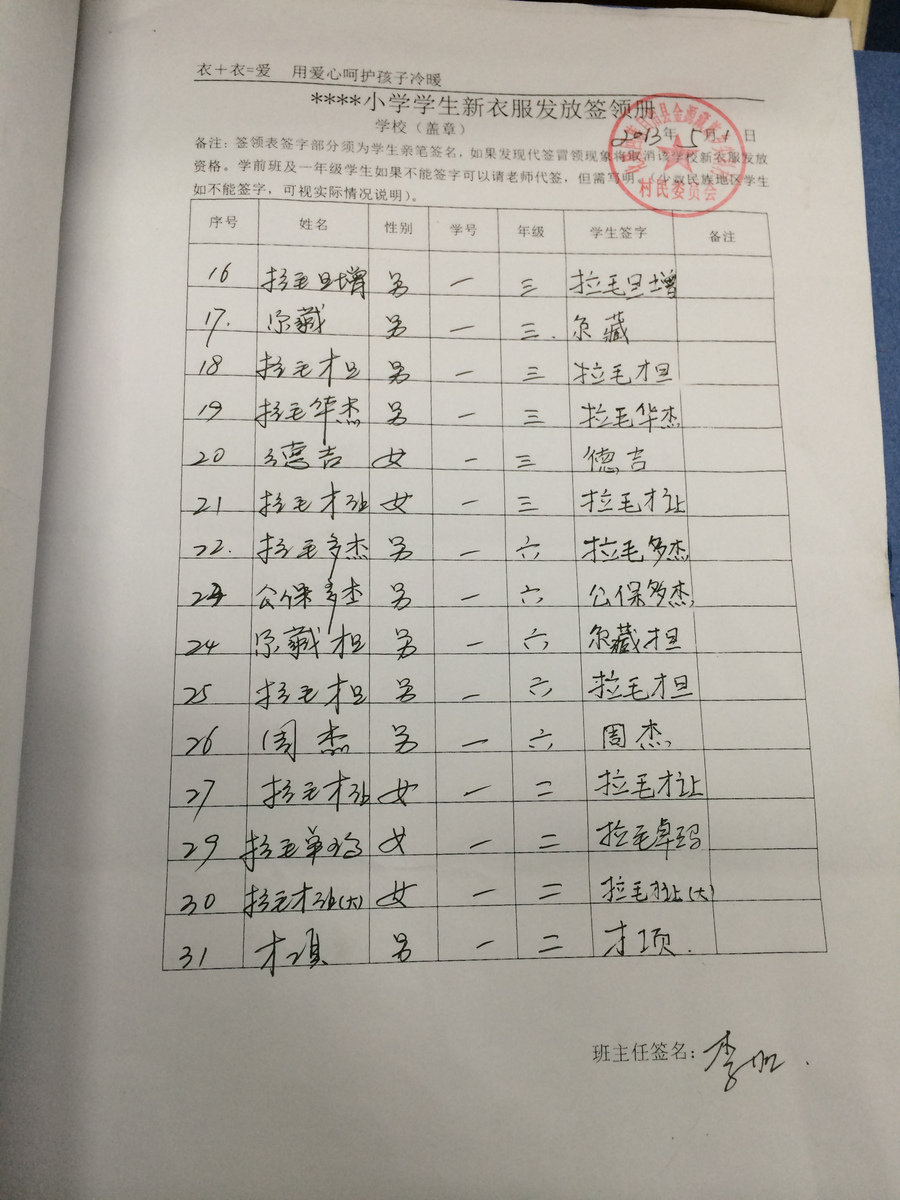 衣＋衣=爱 用爱心呵护孩子冷暖
****小学学生新衣服发放签领册
学校（盖章） 2013年5月1日
备注：签领表签字部分须为学生亲笔签名，如果发现代签冒领现象将取消该学校新衣服发放
资格。学前班及一年级学生如果不能签字可以请老师代签，但需写明。（少数民族地区学生
如不能签字，可视实际情况说明）。
村民委员会
序号 姓名 性别 学号 年级 学生签字 备注
16 拉毛旦增 男 一 三 拉毛旦增
17. 尕藏 男 一 三. 尕藏
18 拉毛才旦 男 一 三 拉毛才旦
19 拉毛华杰 男 一 三 拉毛华杰
20 德吉 女 一 三 德吉
21 拉毛才让 女 一 三 拉毛才让
22. 拉毛多杰 男 一 六 拉毛多杰
23 公保多杰 男 一 六 公保多杰
24 尕藏才旦 男 一 六 尕藏才旦
25 拉毛才旦 男 一 六 拉毛才旦
26 周杰 男 一 六 周杰
27 拉毛才让 女 一 二 拉毛才让
29 拉毛卓玛 女 一 二 拉毛卓玛
30 拉毛才让(大) 女 一 二 拉毛才让(大)
31 才项 男 一 二 才项.
班主任签名：李